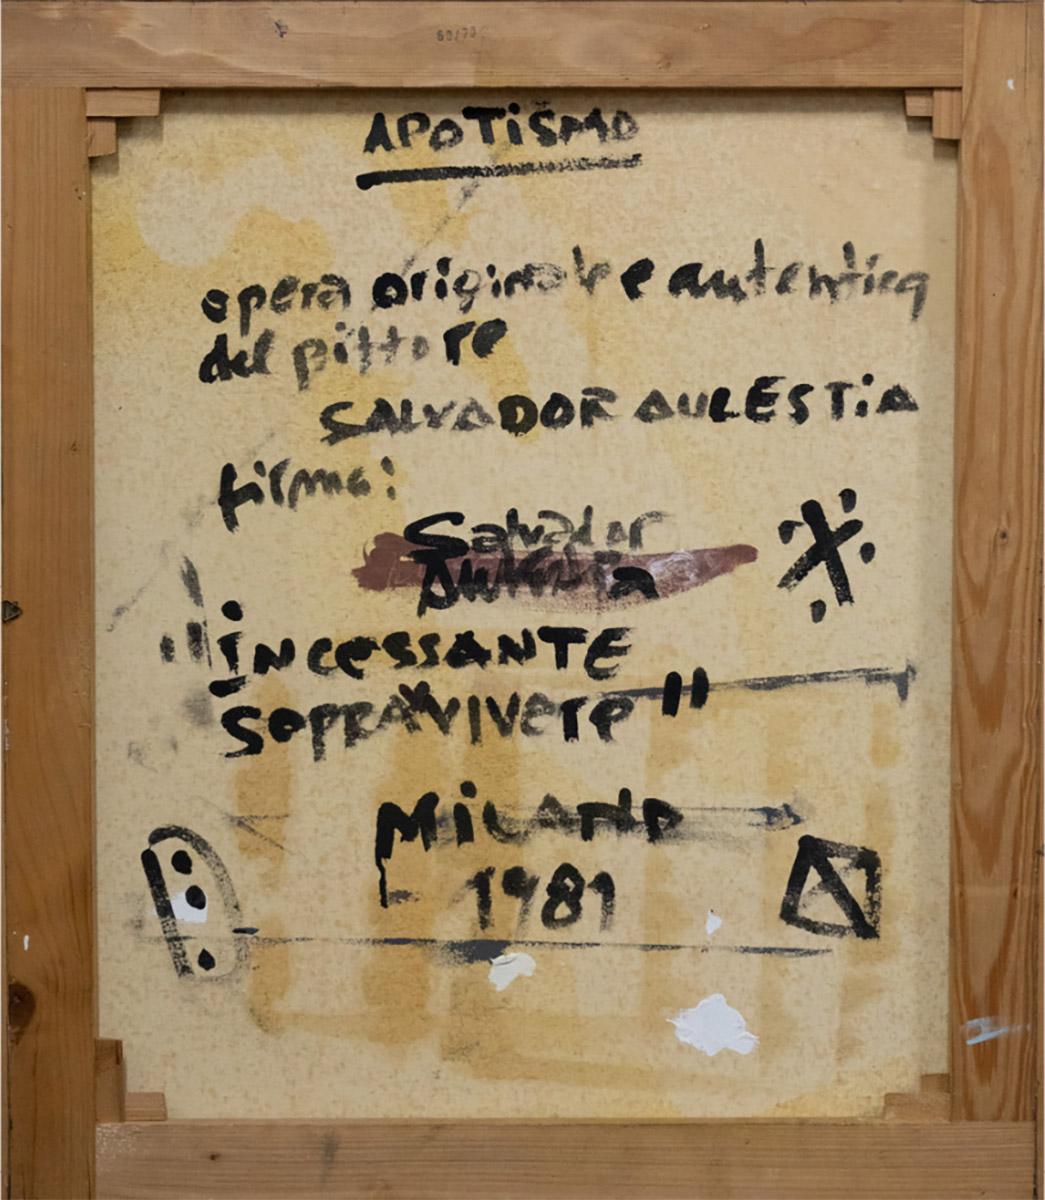 60/73
APOTiSMO
opera originale e autentica
del pittore
SALVADOR AULESTiA
firma:
Salvador
Aulestia
"iNCeSSANTE
SOPRAVVIVere"
MiLANO
1981